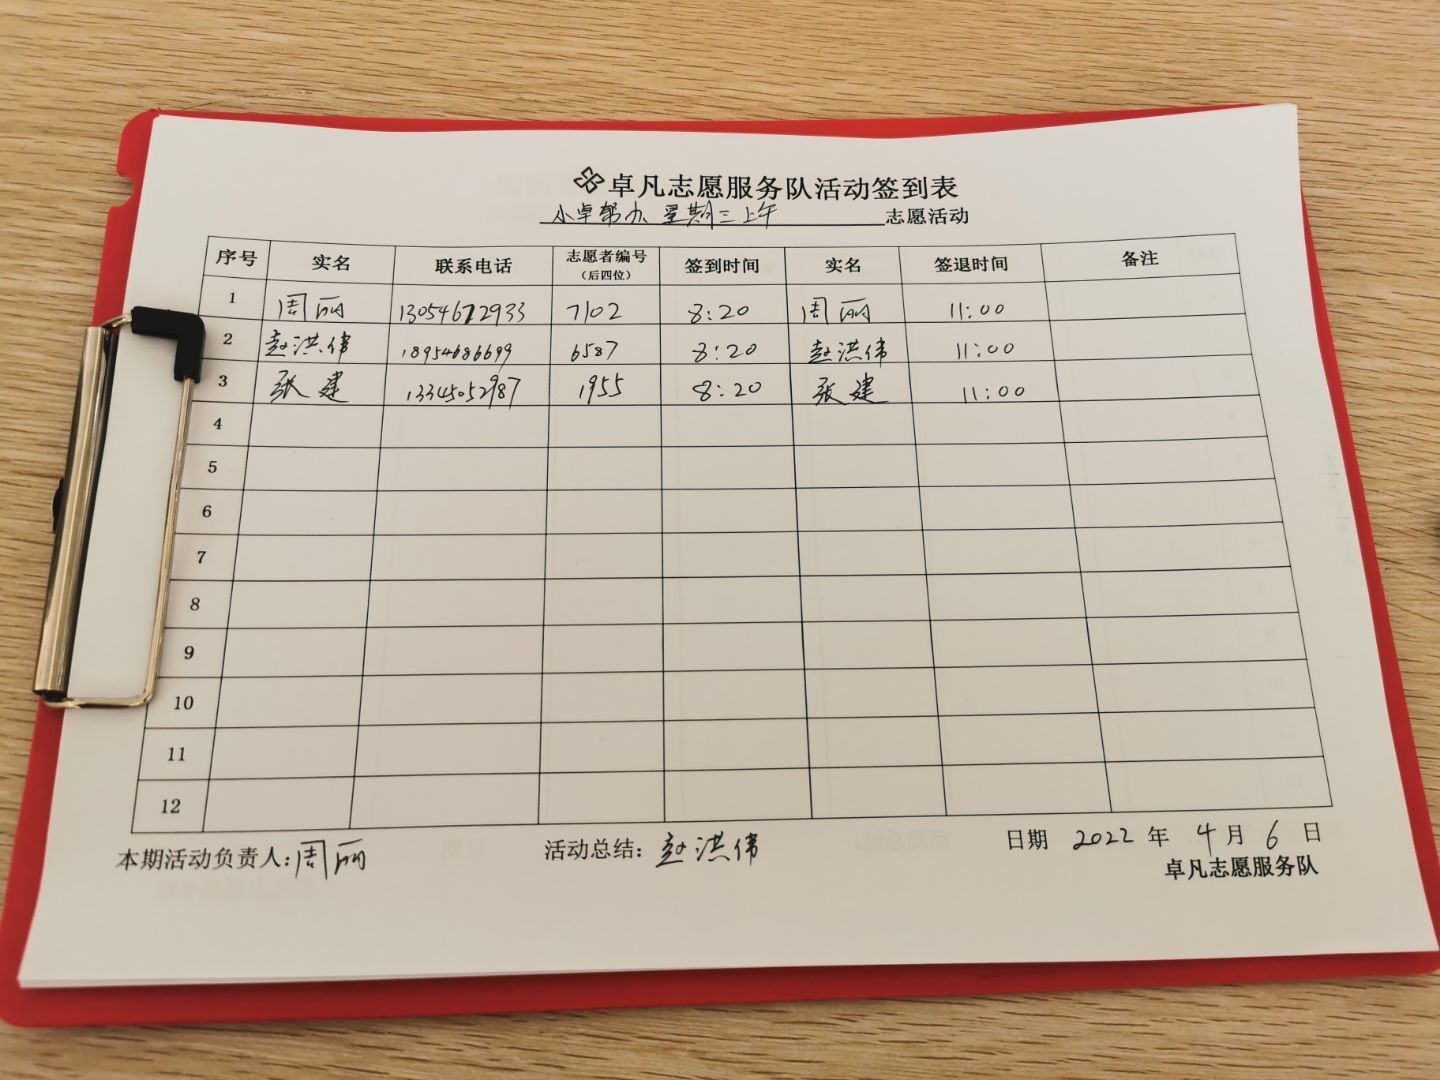 卓凡志愿服务队活动签到表
小卓帮办 星期三上午 志愿活动
序号 实名 联系电话 志愿者编号（后四位） 签到时间 实名 签退时间 备注
1 周丽 13054672933 7102 8:20 周丽 11:00
2 赵洪伟 18954686699 6587 8:20 赵洪伟 11:00
3 张建 13345052987 1955 8:20 张建 11:00
4
5
6
7
8
9
10
11
12
本期活动负责人:周丽 活动总结: 赵洪伟 日期 2022 年 4 月 6 日
卓凡志愿服务队